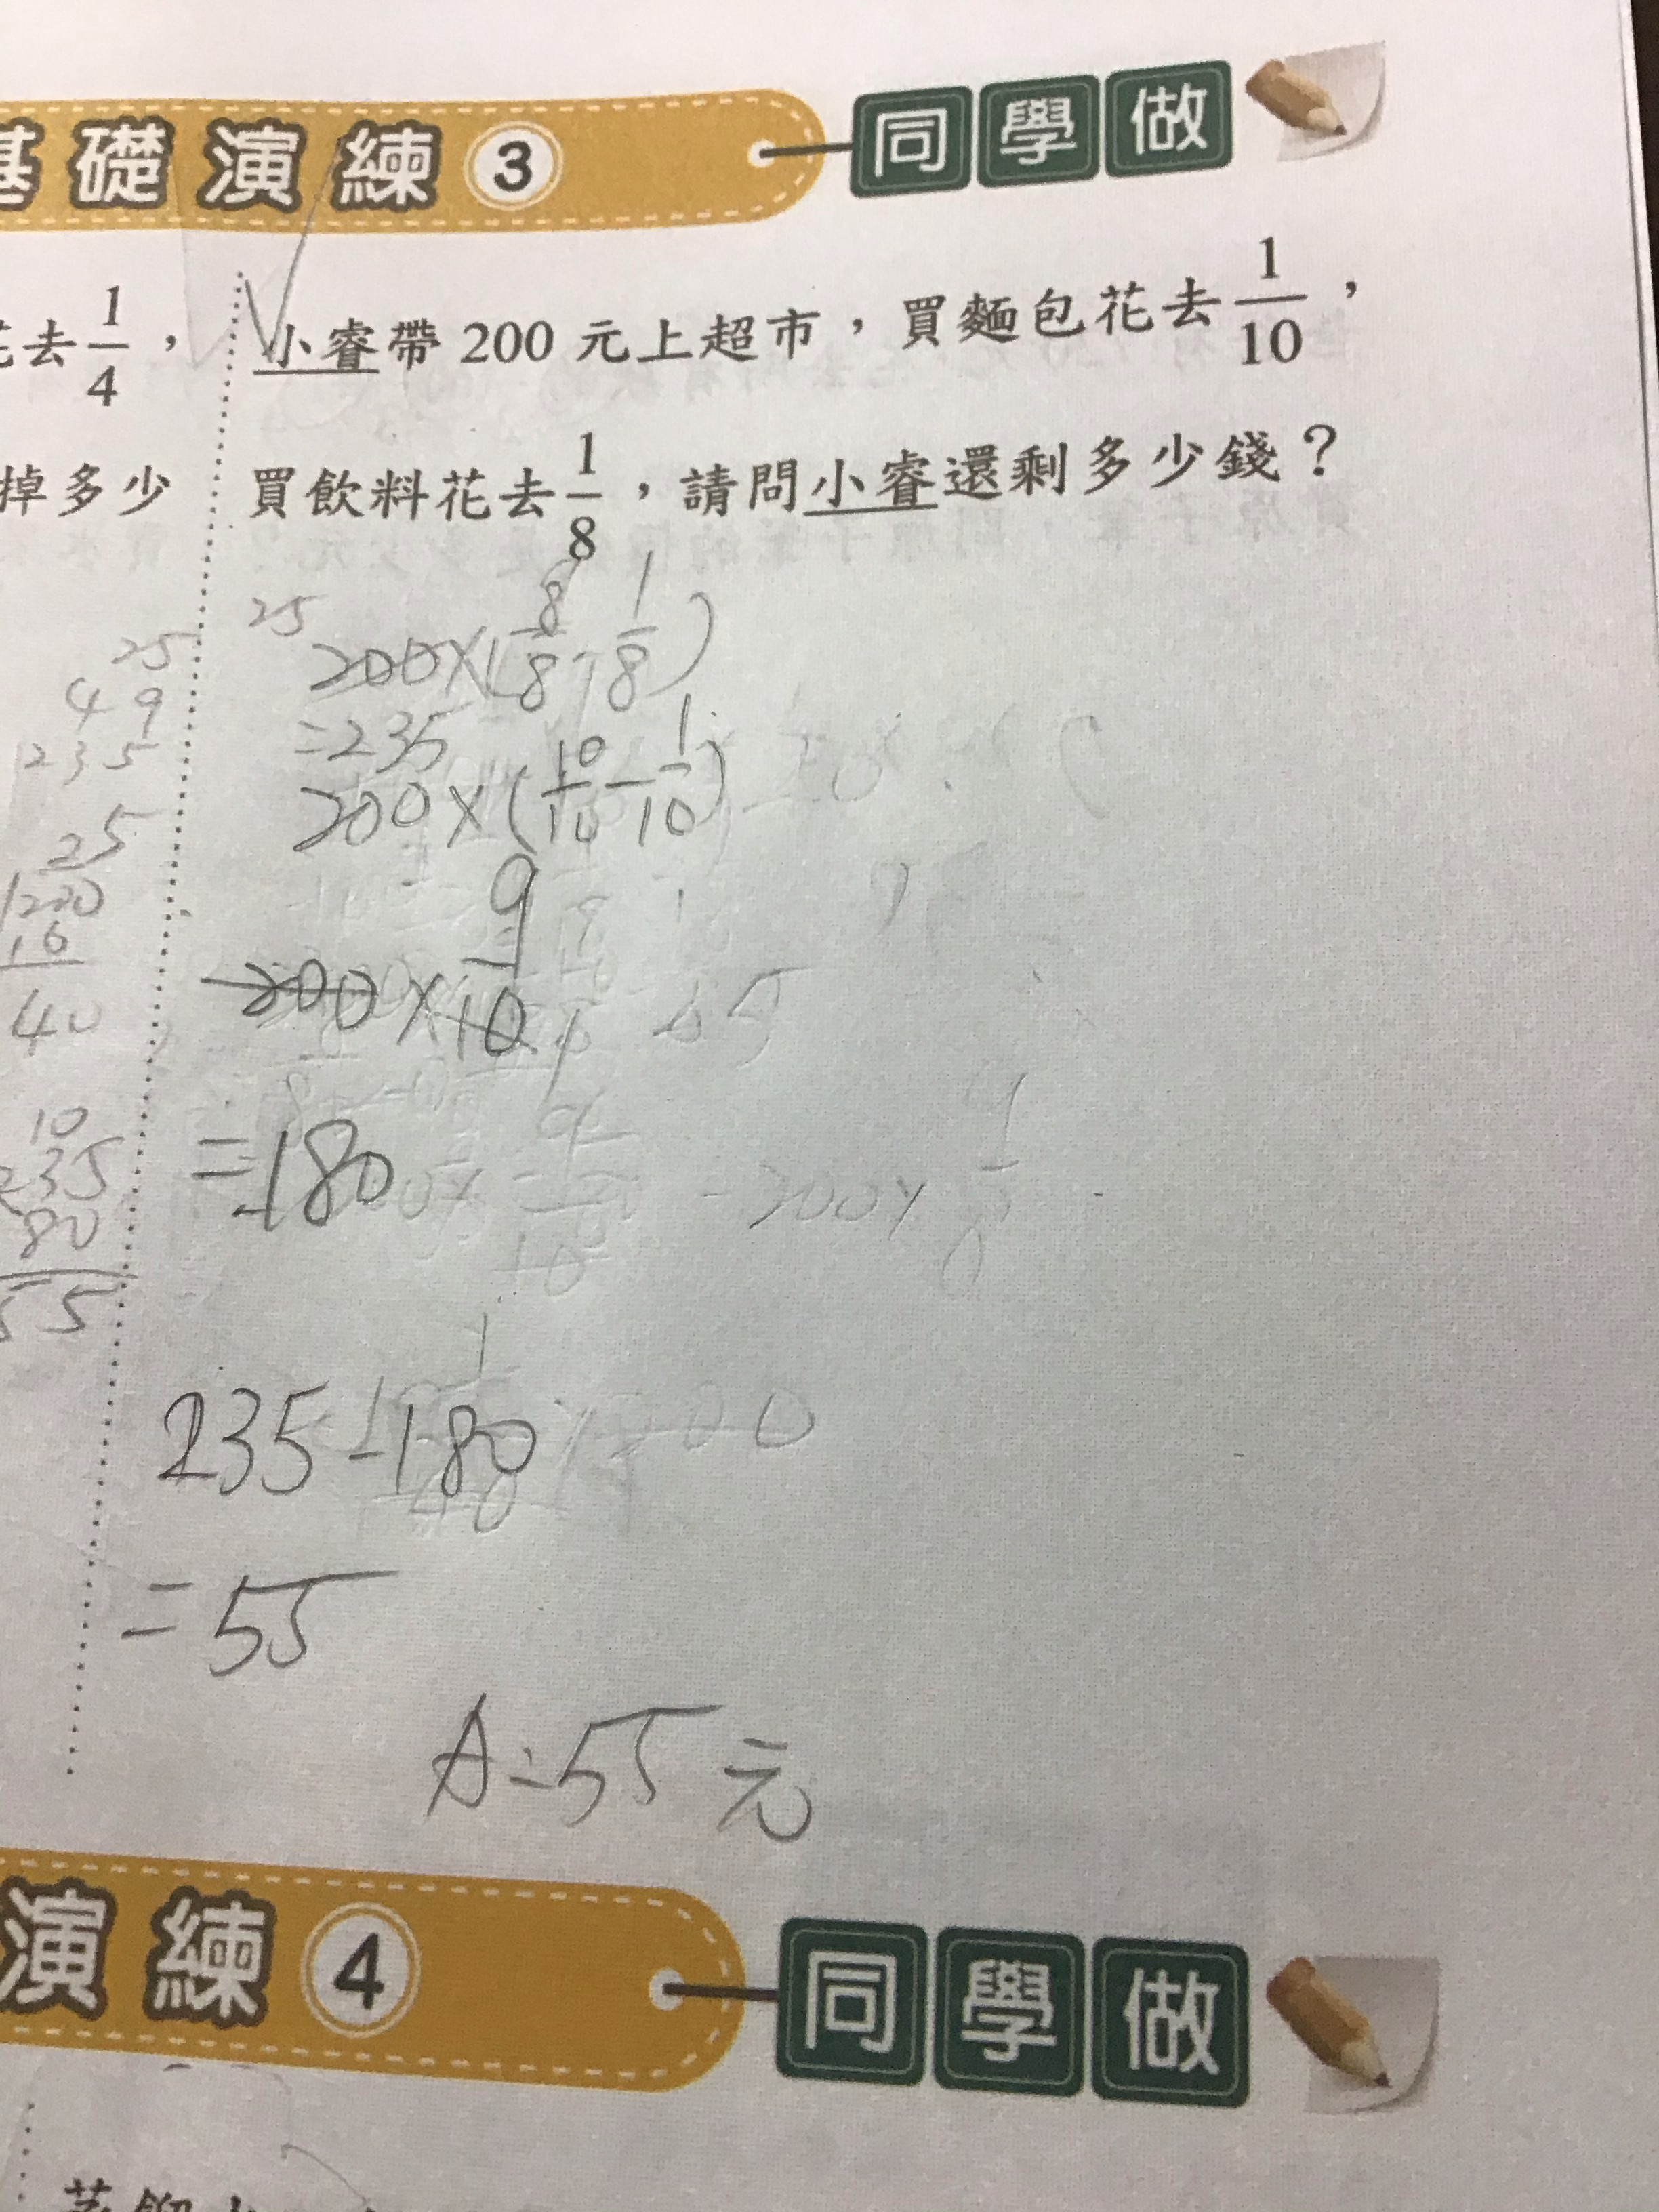 基礎演練3 同學做
花去1/4，
掉多少
小睿帶 200 元上超市，買麵包花去1/10，
買飲料花去1/8，請問小睿還剩多少錢？
25
49
235
25
200
16
40
10
235
80
55
25
200×(8/8-1/8)
=235
200×(10/10-1/10)
200×9/10
=180
-200×
235-180
=55
A:55元
演練4 同學做